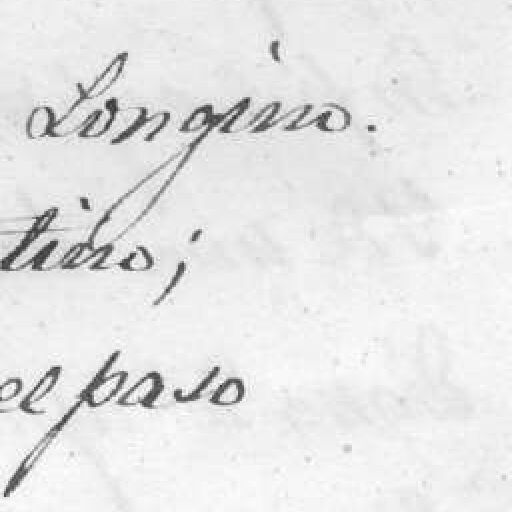 Longino.
tino;
el paso